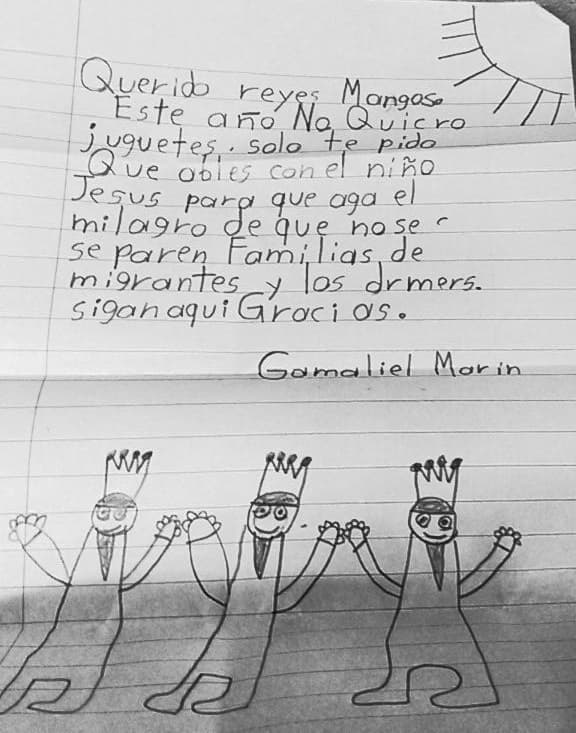 Querido reyes Mangos.
Este año No Quicro
juguetes. solo te pido
Que obles con el niño
Jesus para que aga el
milagro de que no se
se paren Familias de
migrantes y los drmers.
sigan aqui Gracias.
Gamaliel Marin